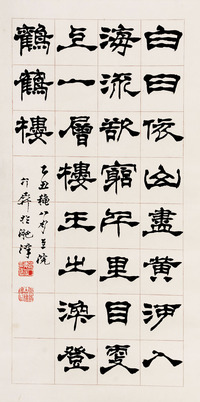 白日依山盡黃河入
海流欲窮千里目更
上一層樓王之渙登
鸛鵲樓
乙丑